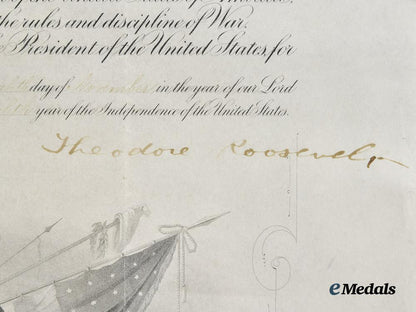 the rules and discipline of War.
President of the United States, for
day of November in the year of our Lord
year of the Independence of the United States.
Theodore Roosevelt
eMedals